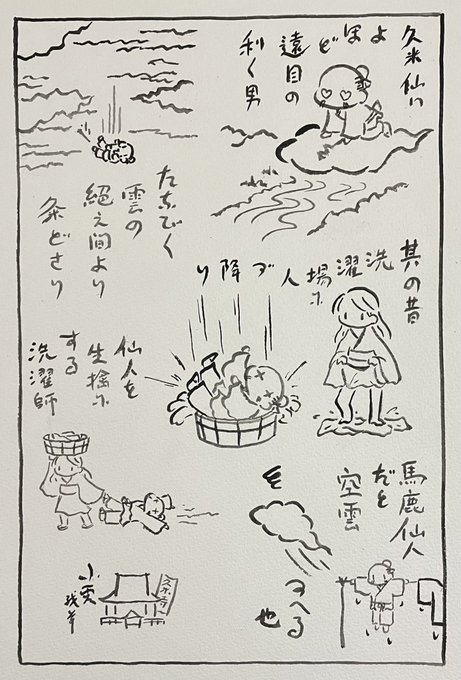 久米仙ハ
よほど
遠目の
利く男
たなびく
雲の
絶え間より
粂どさり
其の昔
洗濯場に人が降り
仙人を
生擒に
する
洗濯師
馬鹿仙人
だと
空雲
也
久米寺